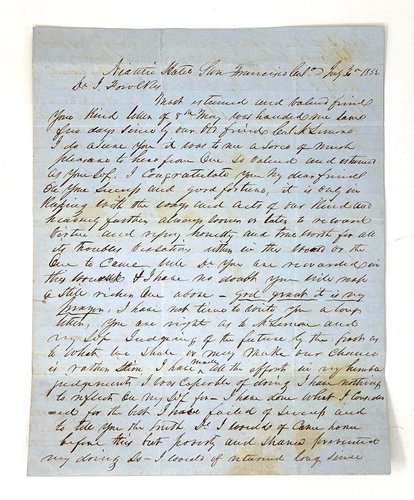 Niantic Hotel San Francisco Cal. July 4th 1852
Dr J. Fowlkes
Most esteemed and valued friend
Your kind letter of 8th May was handed me some
few days since by our Old friend A. H. Simons
I do assure you it was to me a sorce of much
pleasure to hear from One so valued and esteemed
as your self. I Congratulate you My dear friend
On your Success and good fortune, it is only in
Keeping with the ways and acts of our Kind and
heavenly father always sooner or later to reward
Virtue and repay honesty and true worth for all
its troubles Visitations either in this world or the
One to Come. Well Dr you are rewarded in
this world & I have no doubt you will meet
a Still richer One above – God grant it is my
prayer, I have not time to write you a long
letter, you are right as to A Simons and
my self Judging of the future by the past as
to what we Shall or may make our Chance
is rather Slim I have made all the efforts in my humble
Judgement I was Capable of doing I have nothing
to reflect On my self for – I have done what I Consider
–ed for the best I have failed of Success and
to tell you the truth Dr I would of Came home
before this but poverty and Shame prevented
my doing so – I would of returned long since